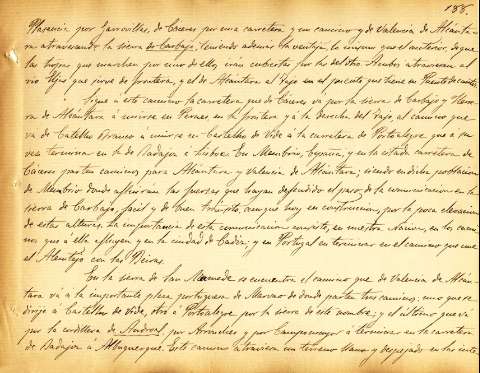 188.
Plasencia por Garrovillas, de Cáceres por una carretera y un camino y de Valencia de Alcánta-
ra atravesando la sierra de Carbajo, teniendo además la ventaja, lo mismo que el anterior, de que
las tropas que marchen por uno de ellos, irán cubiertas por los del otro. Ambos atraviesan el
río que sirve de frontera, y el de Alcántara el Tajo en el puente que tiene en
Sigue a este camino la carretera que de Cáceres va por la sierra de Carbajo y
de Alcántara á unirse en en la frontera y á la derecha del Tajo, al camino que
va de Castello Branco á unirse en Castello de Vide á la carretera de Portoalegre que á su
vez termina en la de Badajoz á Lisboa. En Membrio, y en la citada carretera de
Cáceres parten caminos para Alcántara y Valencia de Alcántara; siendo en dicha población
de Membrio donde afluirían las fuerzas que hayan defendido el paso de la comunicacion en la
sierra de Carbajo, fácil y de buen tránsito, aunque hoy en construccion, por la poca elevacion
de estas alturas. La importancia de esta comunicacion consiste, en nuestra Nacion, en los cami-
nos que á ella afluyen y en la ciudad de y en Portugal en terminar en el camino que une
el Alentejo con las Beiras.
En la sierra de San Mamede se encuentra el camino que de Valencia de Alcán-
tara vá á la importante plaza portuguesa de Marvao de donde parten tres caminos; uno que se
dirije á Castello de Vide, otro á Portoalegre por la sierra de este nombre; y el último que vá
por la cordillera de por Arronches y por Campomayor á terminar en la carretera
de Badajoz á Alburquerque. Este camino atraviesa un terreno llano y despejado en las inme-